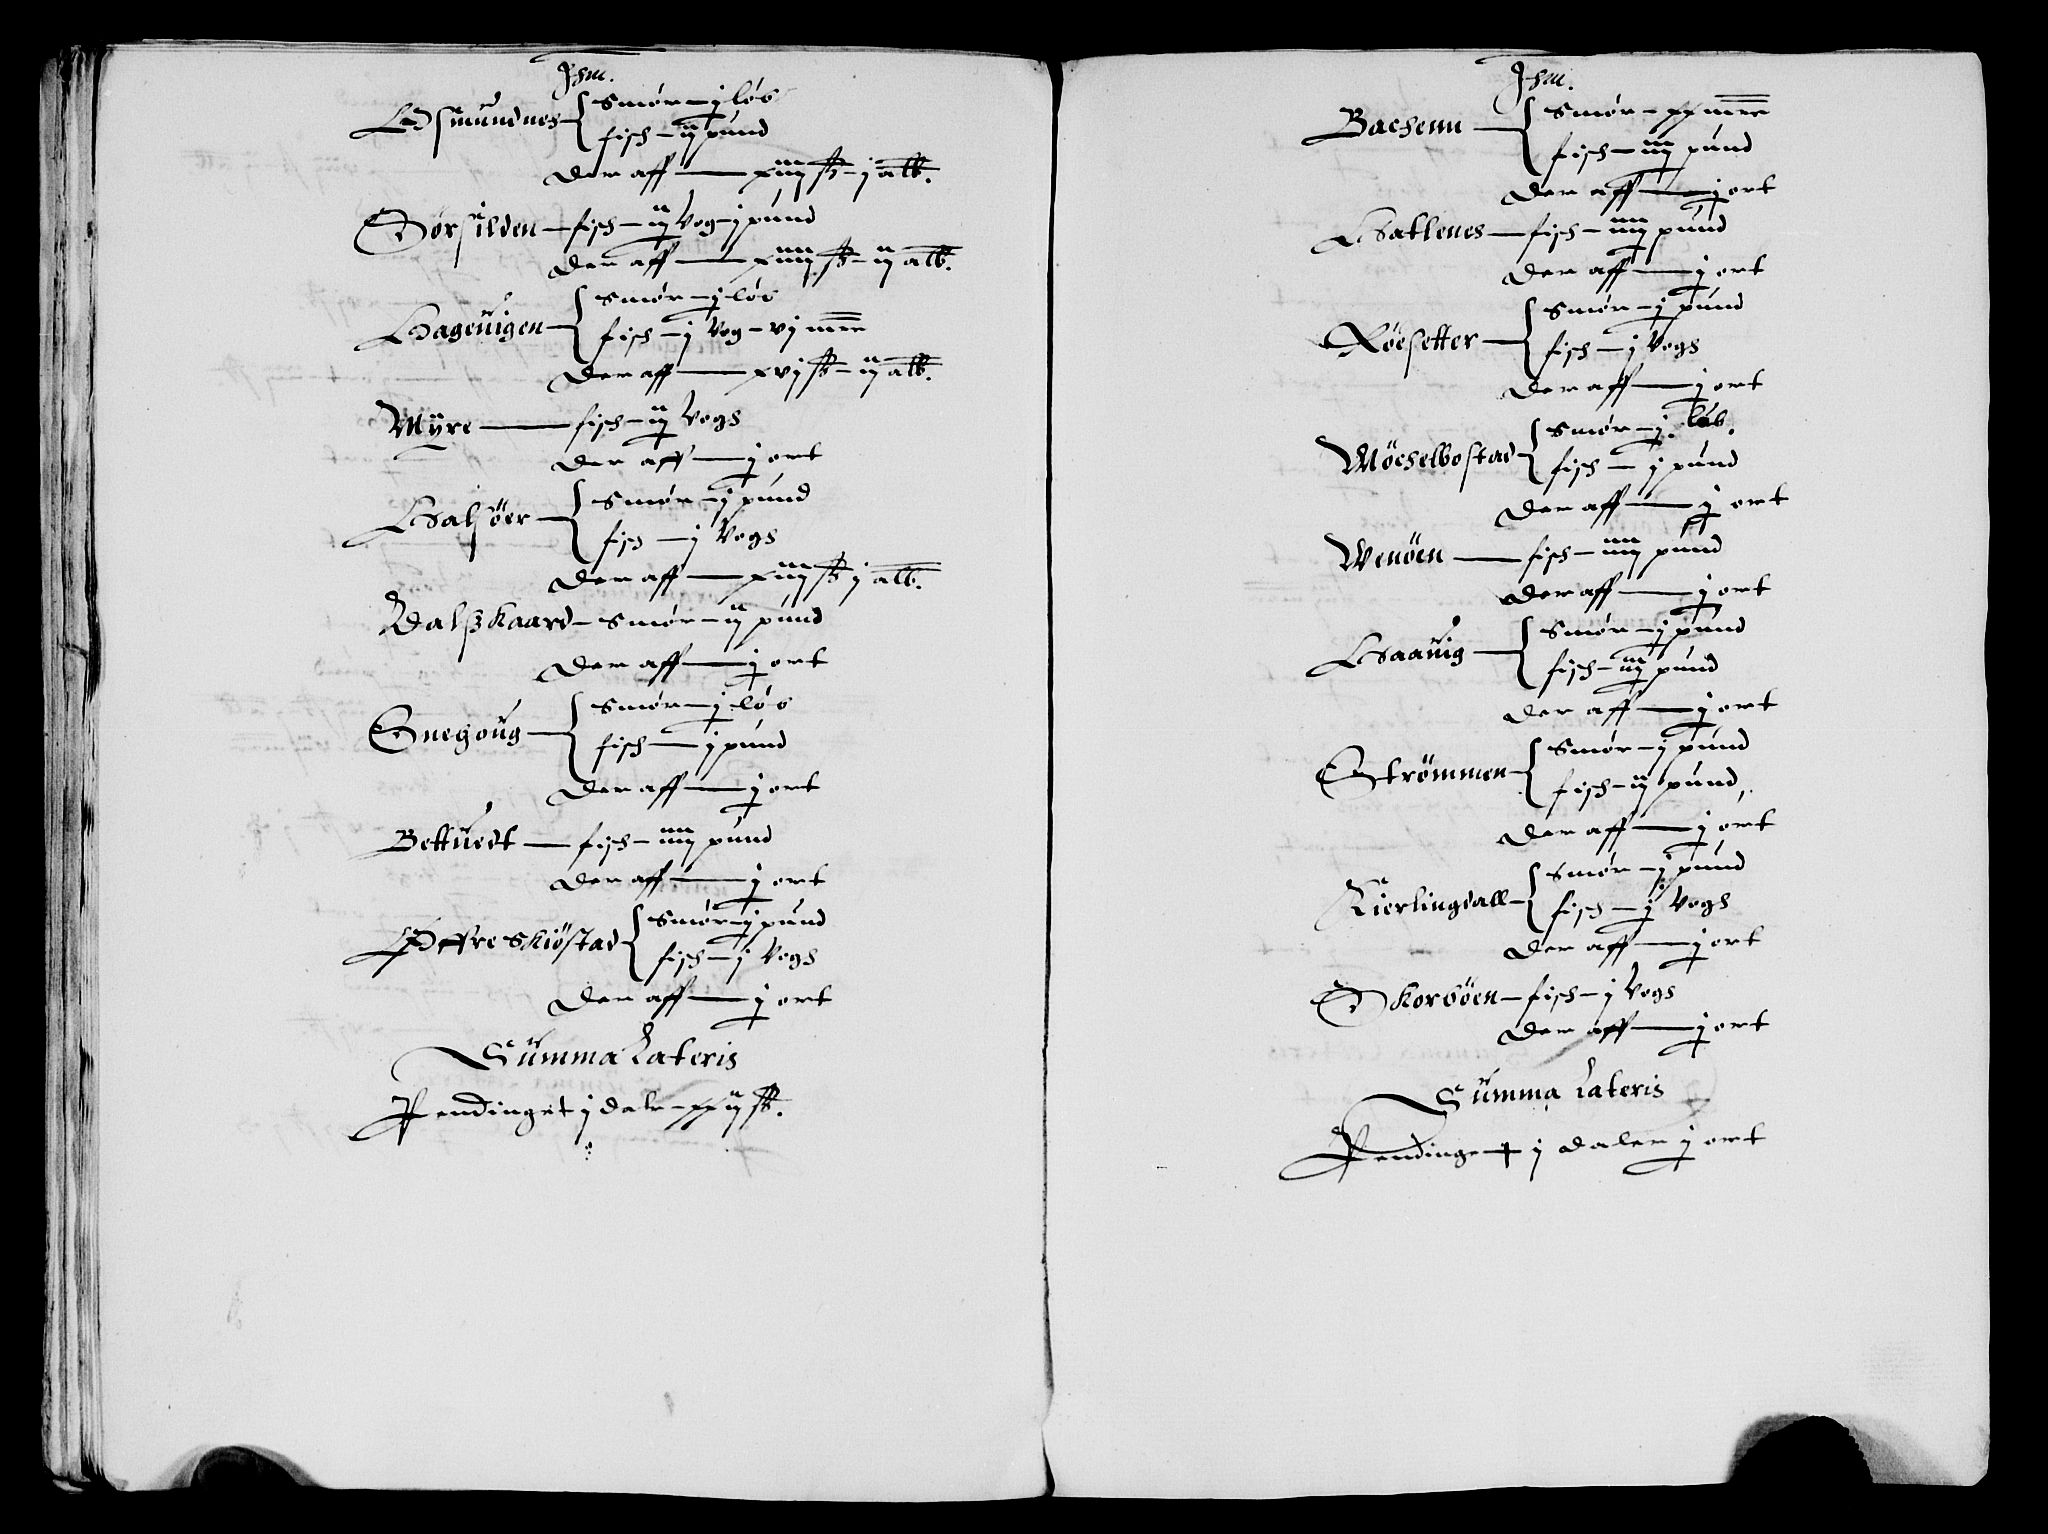 Jtem.
Osmundnes Smør – j løb
fisch – ij pund
der aff — xiij ſſ – j alb.
Sørsilden – fisch – ij Vog – j pund
der aff — xiiij ſſ – ij alb.
Hageuigen Smør – j løb
fisch – j Vog – vj mrc
der aff — xvj ſſ – ij alb.
Myre — fisch – ij Vogs
der aff — j ort
Halsöer Smør – j pund
fisch — j Vogs
der aff — xiij ſſ j alb.
Dalßkaard – Smør – ij pund
der aff — j ort
Snegoug Smør – j løb
fisch — j pund
der aff — j ort
Bettuedt — fisch – iiij pund
der aff — j ort
Offreskiöstad Smør – j pund
fisch – j Vogs
der aff — j ort
Summa Lateris
Pendinget j dalr – xxij ſſ.
Jtem.
Bachenn Smør – xx mrc
fisch – iij pund
der aff — j ort
Hatlenes — fisch – iiij pund
der aff — j ort
Röesetter Smør – j pund
fisch – j Vogs
der aff — j ort
Möchelbostad Smør – j. løb.
fisch — j pund
der aff — j ort
Wenöen — fisch – iiij pund
der aff — j ort
Haauig Smør – j pund
fisch – iij pund
der aff — j ort
Strömmen Smør – j pund
fisch – ij pund
der aff — j ort
Kierlingdall Smør – j pund
fisch – j Vogs
der aff — j ort
Skorböen – fisch – j Vogs
der aff — j ort
Summa Lateris
Pendinget j daler j ort